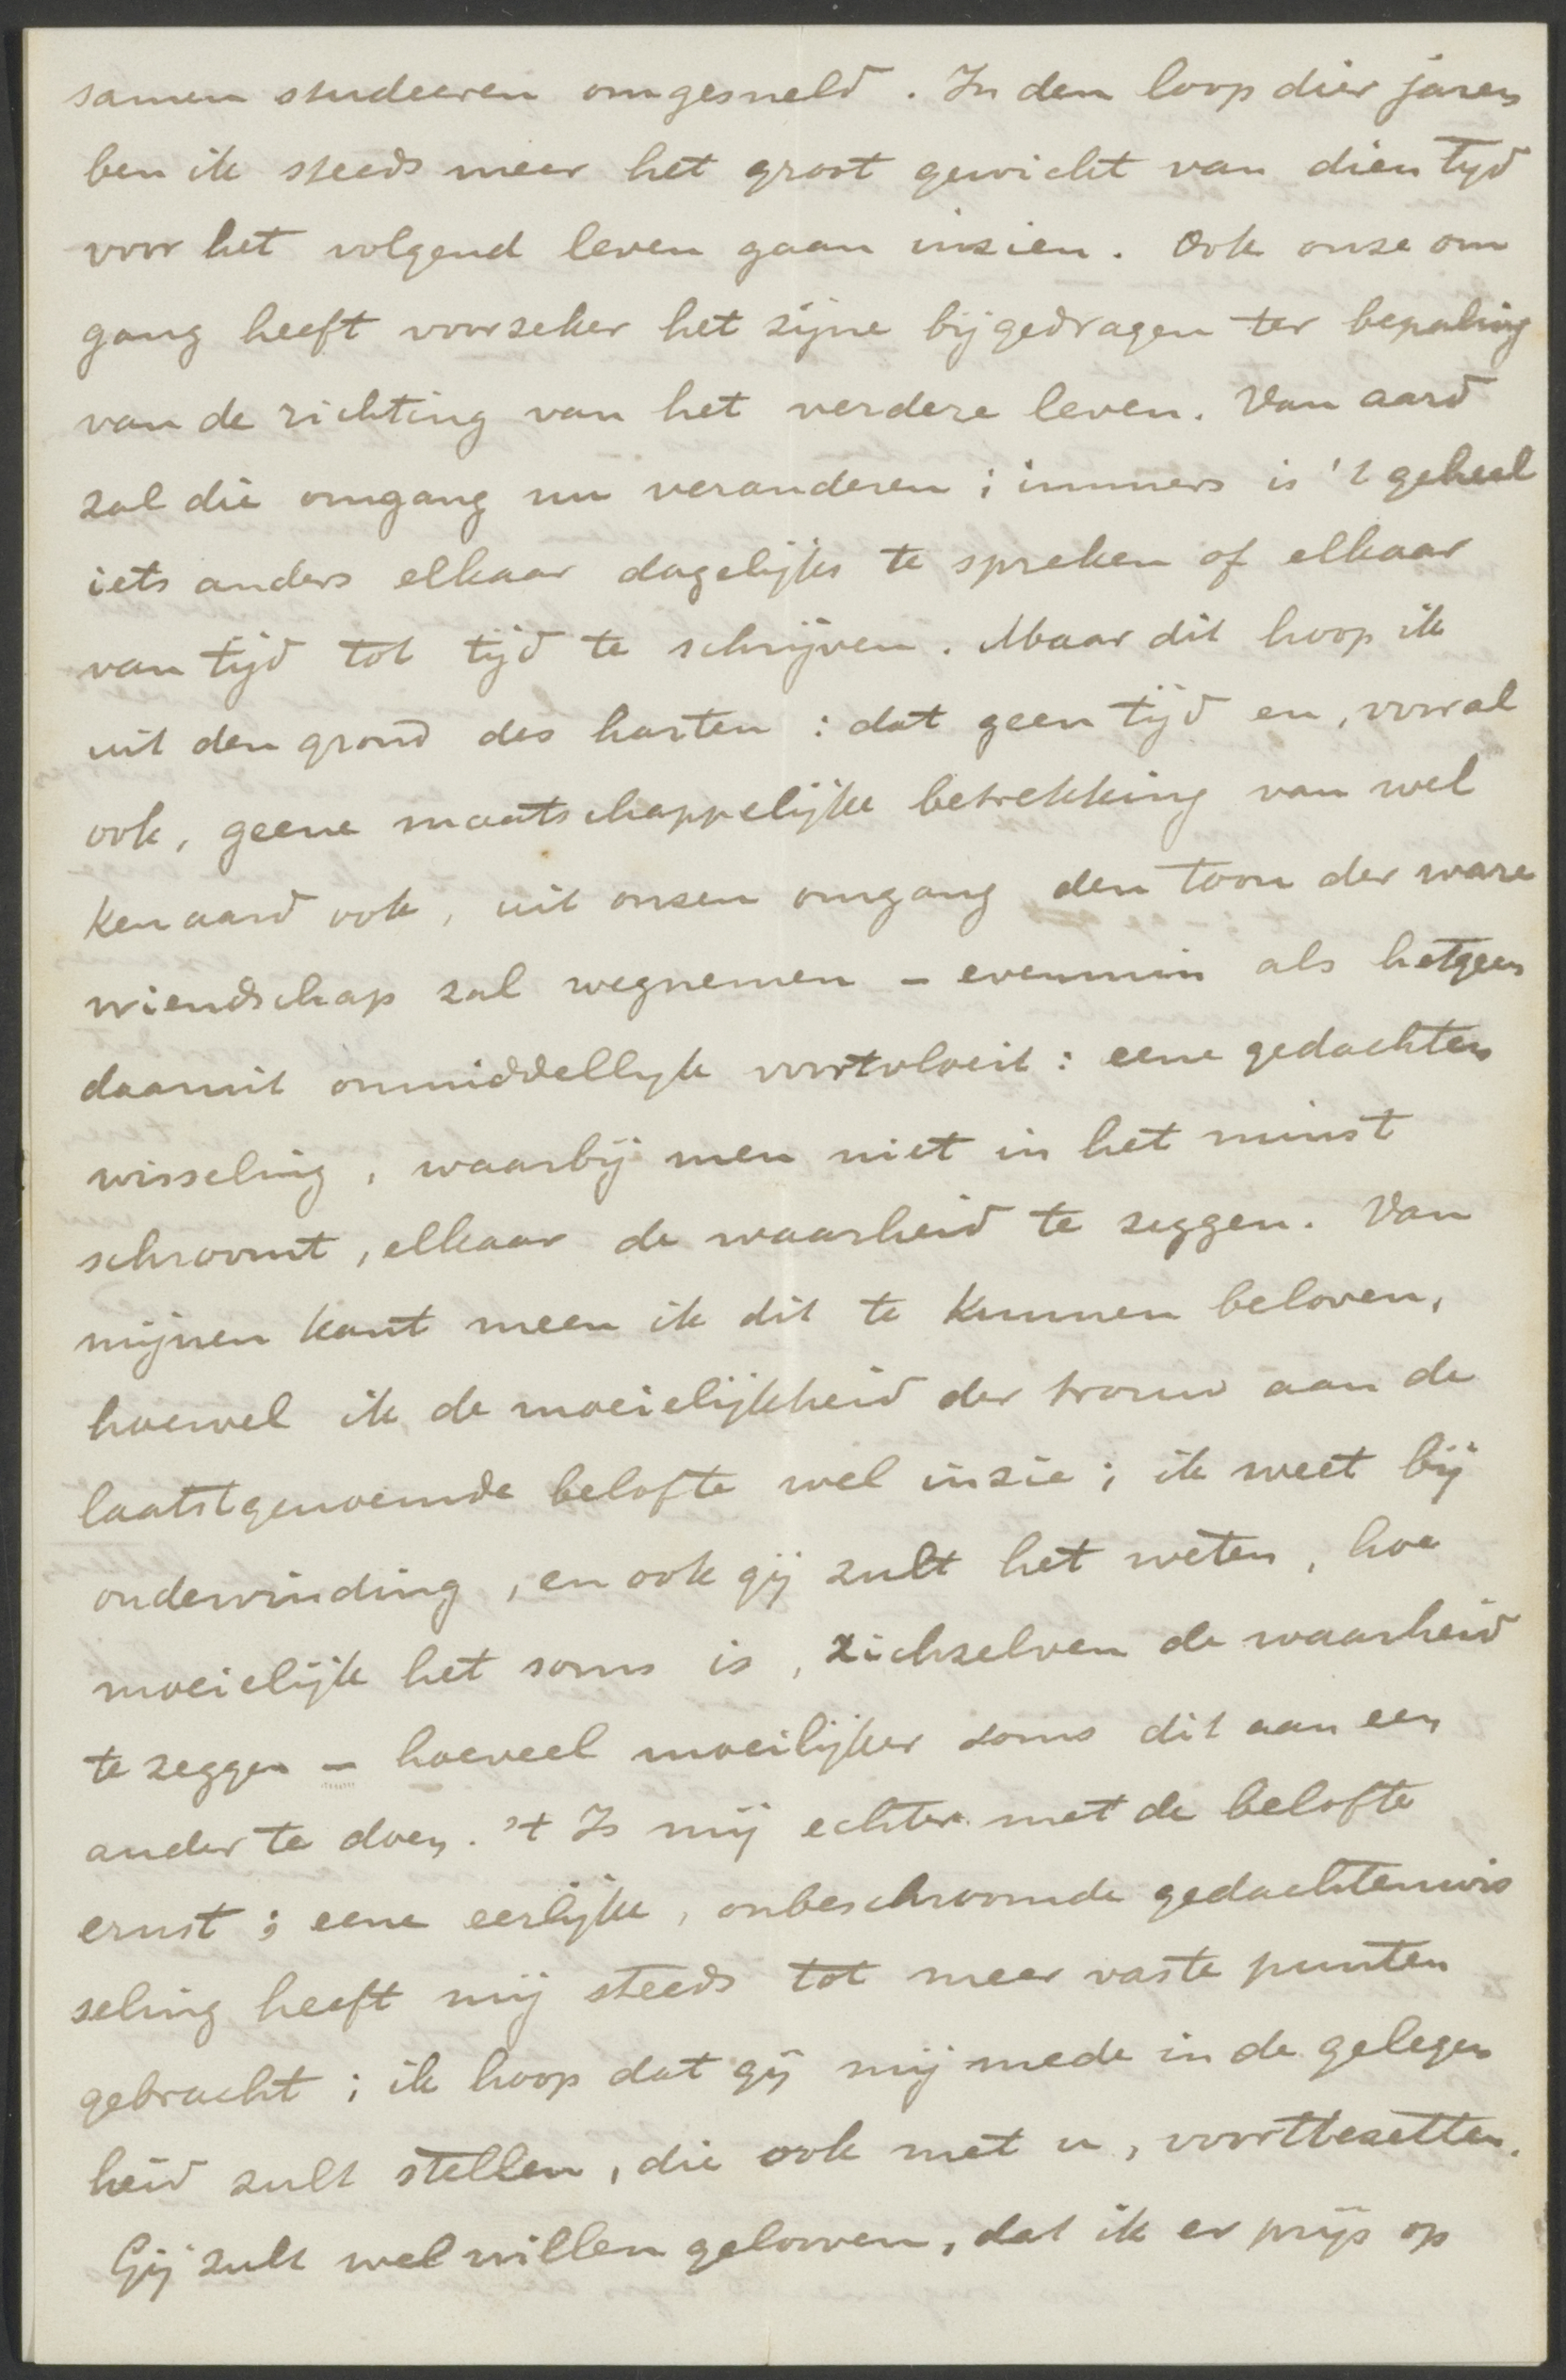 samen studeeren omgesneld. In den loop dier jaren
ben ik steeds meer het groot gewicht van dien tyd
voor het volgend leven gaan inzien. Ook onze om
gang heeft voorzeker het zijne bijgedragen ter bepaling
van de richting van het verdere leven. Van aard
zal die omgang nu veranderen; immers is 't geheel
iets anders elkaar dagelijks te spreken of elkaar
van tijd tot tijd te schrijven. Maar dit hoop ik
uit den grond des harten: dat geen tijd en, vooral
ook, geene maatschappelijke betrekking van wel
ken aard ook, uit onzen omgang den toon der ware
vriendschap zal wegnemen – evenmin als hetgeen
daaruit onmiddellyk voortvloeit: eene gedachten
wisseling, waarbij men niet in het minst
schroomt, elkaar de waarheid te zeggen. Van
mijnen kant meen ik dit te kunnen beloven,
hoewel ik de moeielijkheid der trouw aan de
laatstgenoemde belofte wel inzie; ik weet bij
ondervinding, en ook gij zult het weten, hoe
moeielijk het soms is, zichzelven de waarheid
te zeggen – hoeveel moeilijker soms dit aan een
ander te doen. 't Is mij echter met de belofte
ernst; eene eerlijke, onbeschroomde gedachtenwis
seling heeft mij steeds tot meer vaste punten
gebracht; ik hoop dat gij mij mede in de gelegen
heid zult stellen, die ook met u, voorttezetten.
Gij zult wel willen gelooven, dat ik er prijs op